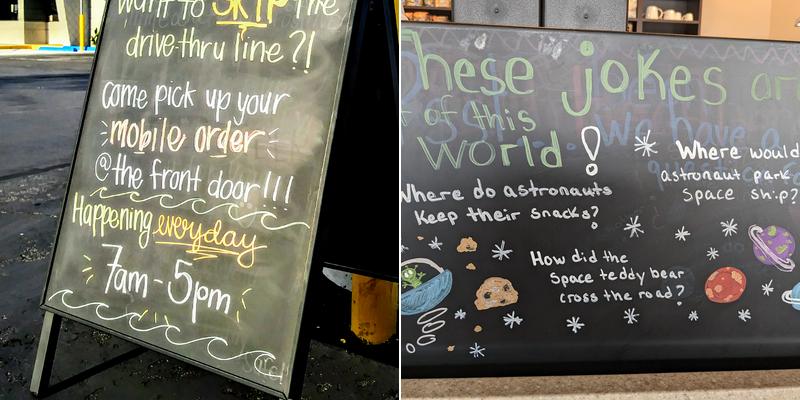 want to SKIP the
drive-thru line?!
come pick up your
mobile order
@the front door!!!
Happening everyday
7am-5pm
these jokes are
of this
world!
Where do astronauts
keep their snacks?
Where would
astronaut park
space ship?
How did the
space teddy bear
cross the road?